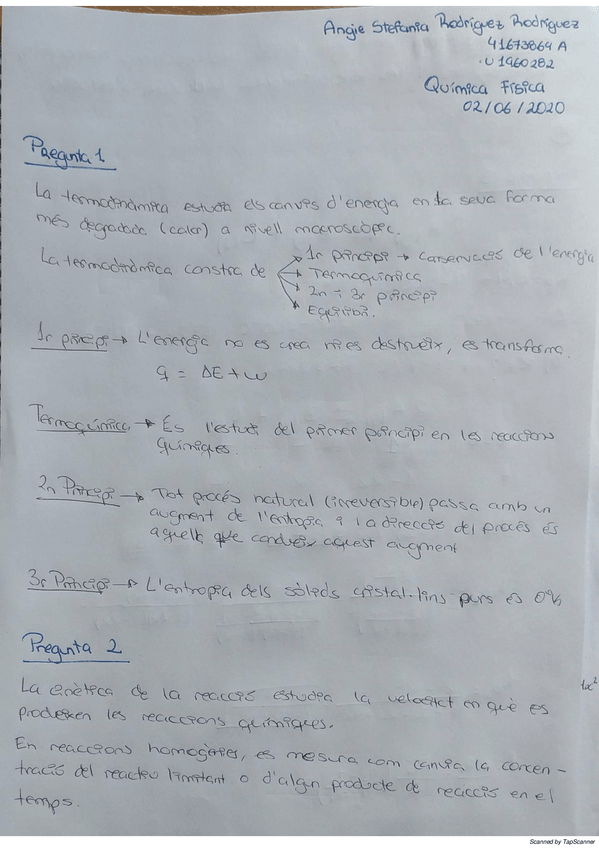 Angie Stefania Rodríguez Rodríguez
41673864 A
U1960282
Química Física
02/06/2020
Pregunta 1
La termodinàmica estudia els canvis d'energia en la seva forma
més degradada (calor) a nivell macroscòpic.
La termodinàmica constra de → 1r principi → conservació de l'energia
→ Termoquímica
→ 2n i 3r principi
→ Equilibri.
1r principi → L'energia no es crea ni es destrueix, es transforma.
q = ΔE + w
Termoquímica → És l'estudi del primer principi en les reaccions
químiques.
2n Principi → Tot procés natural (irreversible) passa amb un
augment de l'entropia i la direcció del procés és
aquella que condueix aquest augment
3r Principi → L'entropia dels sòlids cristal·lins purs és 0%
Pregunta 2
La cinètica de la reacció estudia la velocitat en què es
produeixen les reaccions químiques.
En reaccions homogènies, es mesura com canvia la concen-
tració del reactiu limitant o d'algun producte de reacció en el
temps.
Scanned by TapScanner